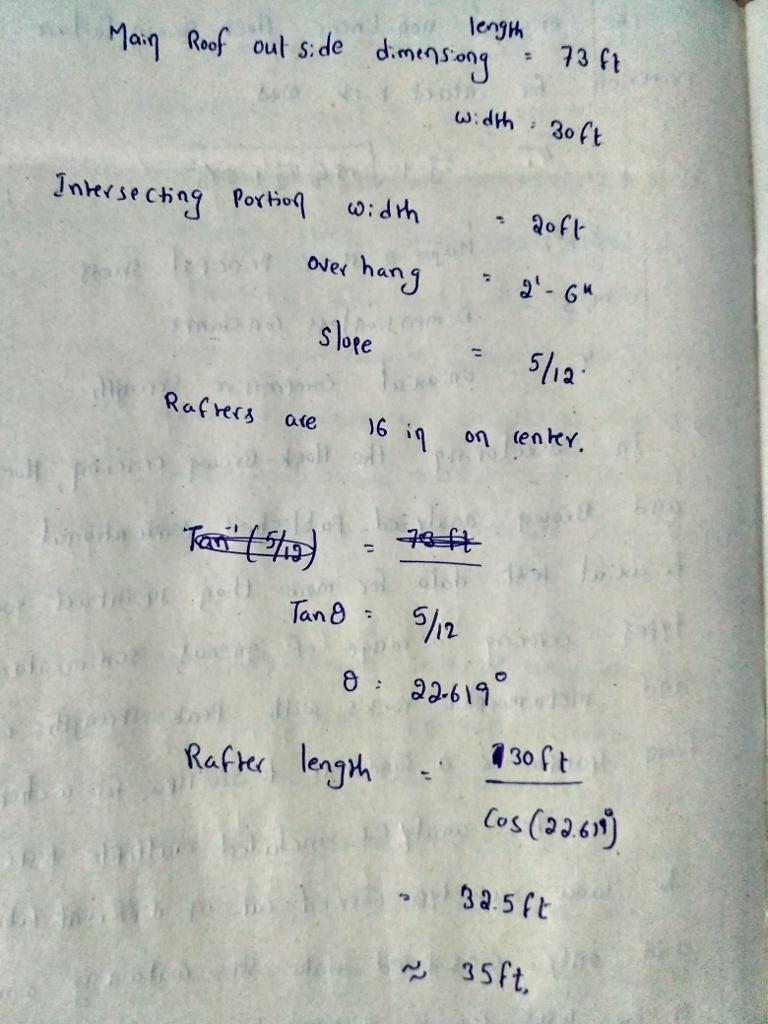 Main Roof out side dimensiong length = 73 ft
width = 30ft
Intersecting Portion width = 20ft
over hang = 2' - 6"
Slope = 5/12.
Rafters are 16 in on center.
Tan⁻¹ (5/12) = 73 ft
Tanθ = 5/12
θ = 22.619°
Rafter length = 30ft
Cos(22.619°)
= 32.5ft
≈ 35ft.